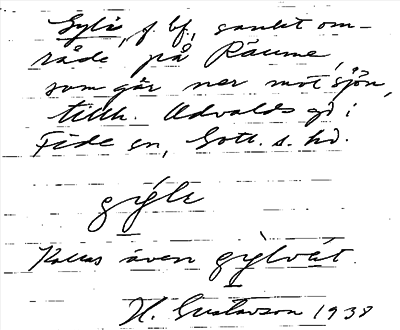 Gylå, f. bf, sankt om-
råde på Raume,
som går ner mot sjön,
tillh. Advalds gd i
Fide sn, Gotl. s. hd.
gýle
Kallas även gýlvät.
H. Gustavson 1938